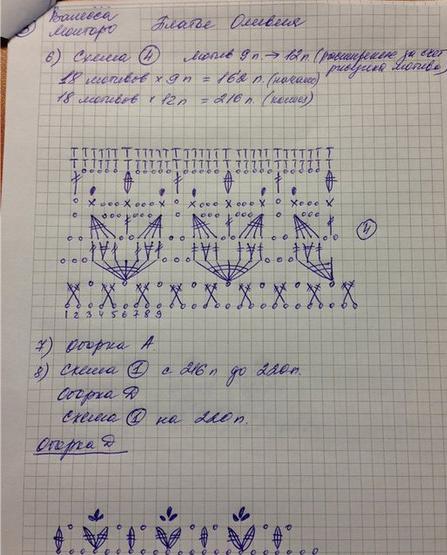 Ванесса
Монторо Платье Оливия
6) Схема 4 мотив 9п. → 12п. (расширение за счет
рисунка мотива)
18 мотивов × 9п = 162 п. (начало)
18 мотивов × 12п = 216 п. (конец)
4
1 2 3 4 5 6 7 8 9
7) Оборка А.
8) Схема 1 с 216 п до 220п.
Оборка Д
Схема 1 на 220п.
Оборка Д